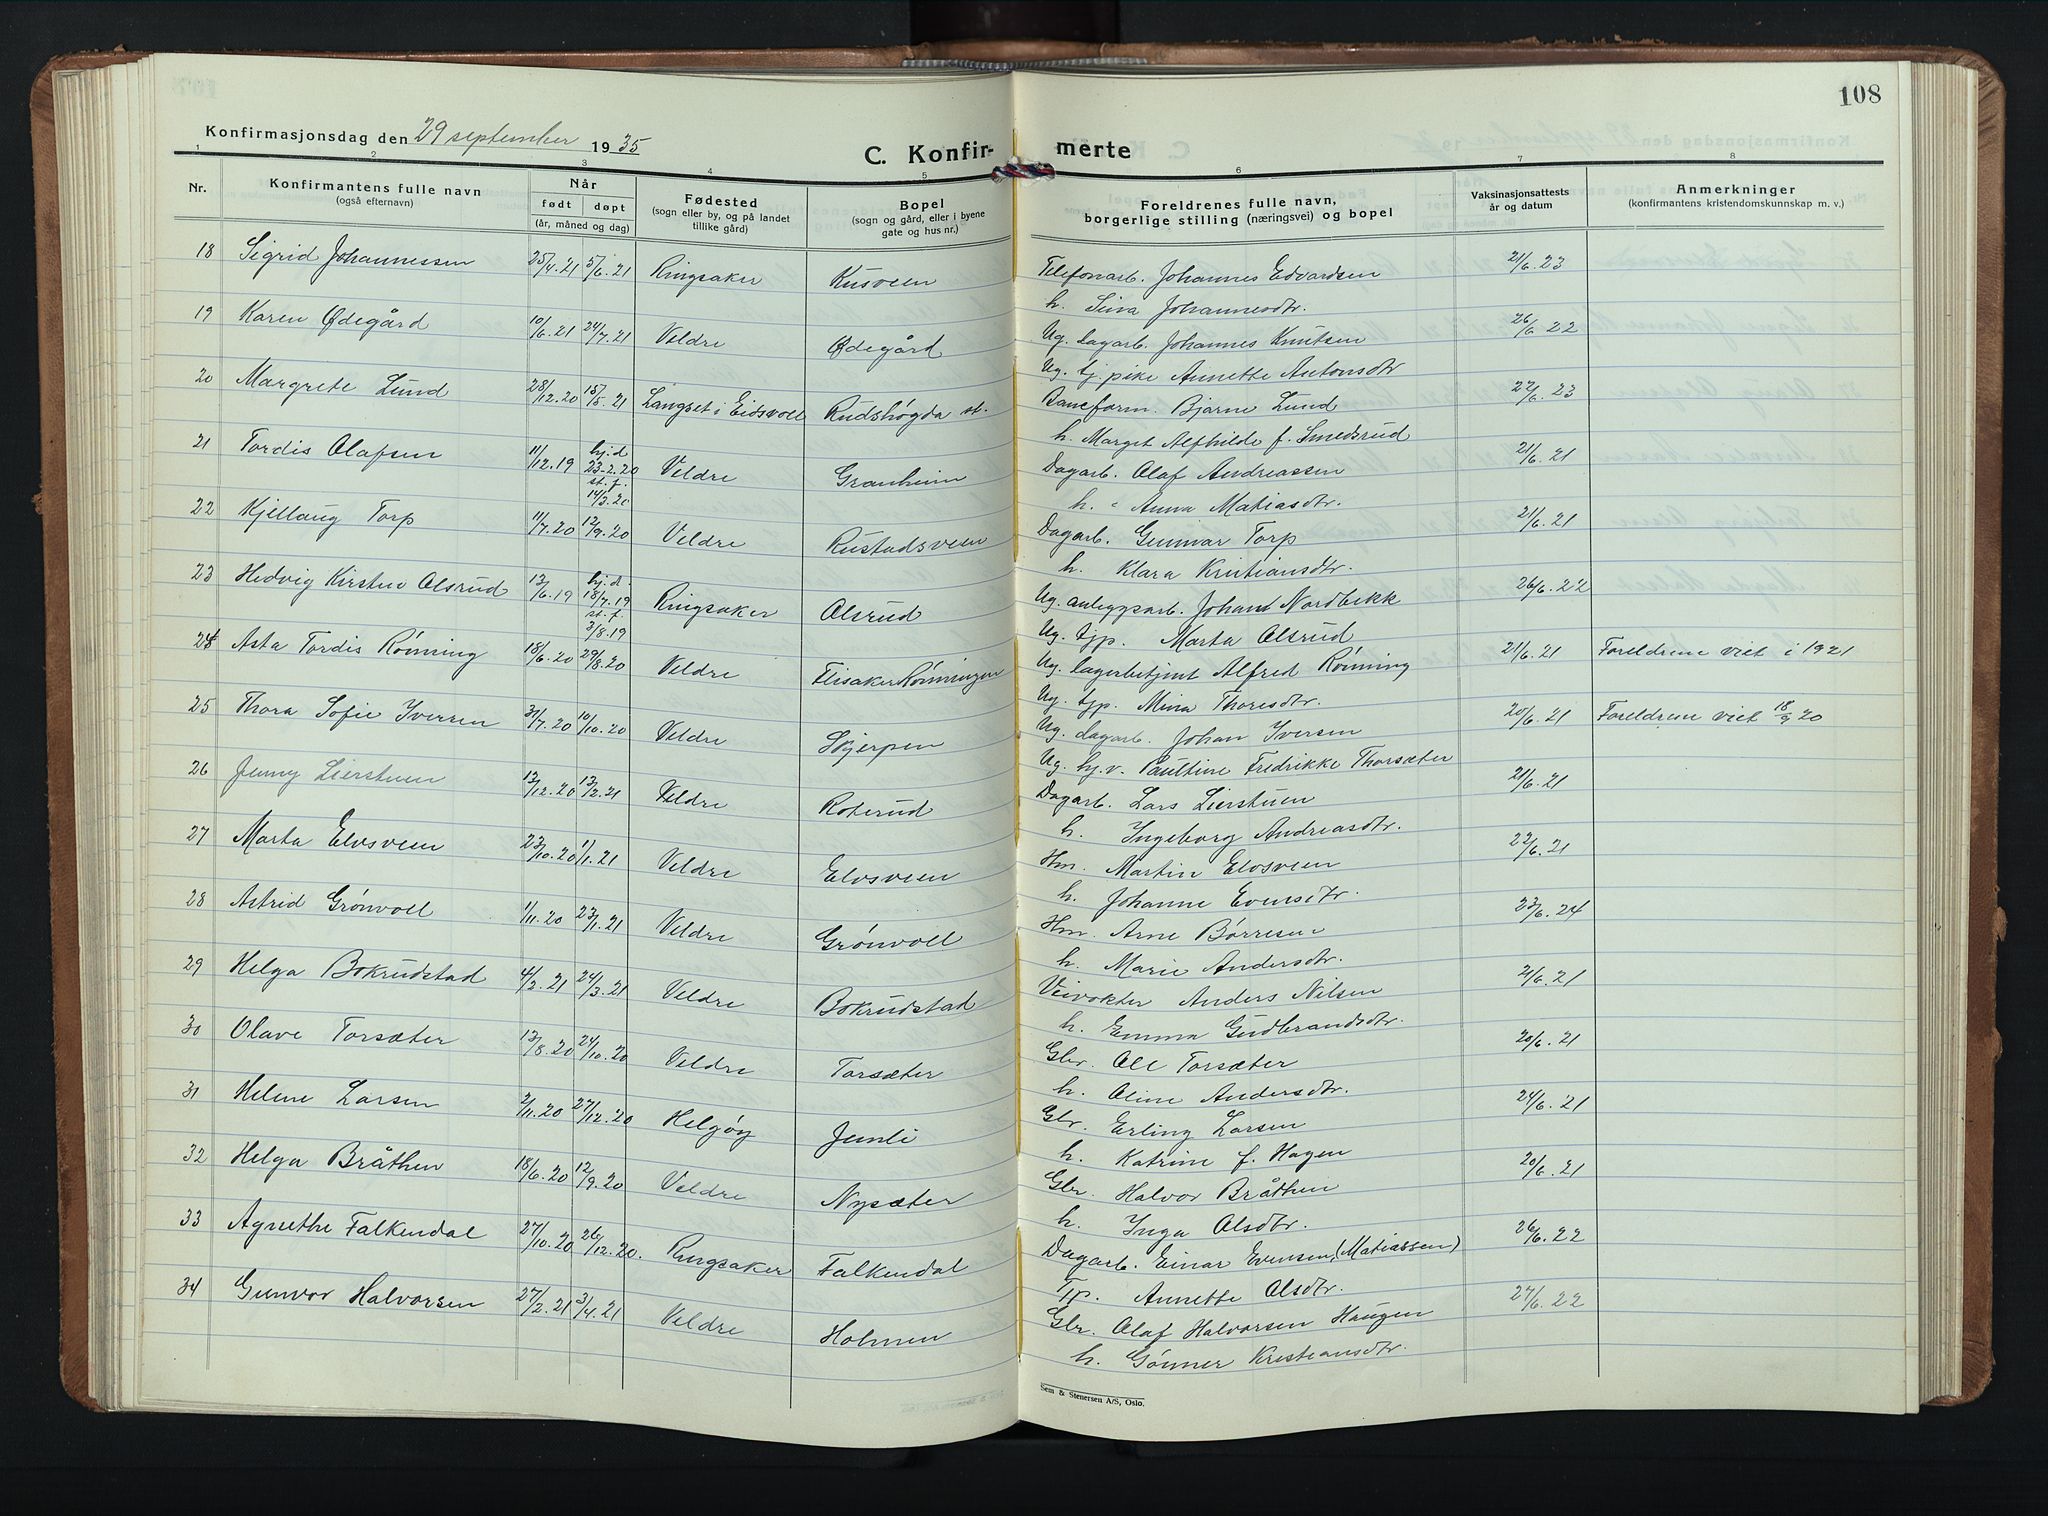 108
Konfirmasjonsdag den 29 september 1935
C. Konfir- merte
1 2 3 4 5 6 7 8
Nr.
Konfirmantens fulle navn
(også efternavn)
Når
født døpt
(år, måned og dag)
Fødested
(sogn eller by, og på landet
tillike gård)
Bopel
(sogn og gård, eller i byene
gate og hus nr.)
Foreldrenes fulle navn,
borgerlige stilling (næringsvei) og bopel
Vaksinasjonsattests
år og datum
Anmerkninger
(konfirmantens kristendomskunnskap m. v.)
18 Sigrid Johannessen 25/4.21 5/6.21 Ringsaker Rusveen Telefonarb. Johannes Edvardsen 21/6.23
h. Sina Johannesdtr.
19 Karen Ødegård 10/6.21 24/7.21 Veldre Ødegård Ug. dagarb. Johannes Knutsen 26/6.22
Ug. tj. pike Annette Antonsdtr
20 Margrete Lund 28/12.20 15/5.21 Langset i Eidsvoll Rudshøgda st. Baneform. Bjarne Lund 22/6.23
h. Marget Alfhilde f. Smedsrud
21 Tordis Olafsen 11/12.19 hj.d 23-2.20 st. f. 14/3.20 Veldre Granheim Dagarb. Olaf Andreassen 21/6.21
h. Anna Matiasdtr.
22 Kjellaug Torp 11/7.20 12/9.20 Veldre Rustadsveen Dagarb. Gunnar Torp 21/6.21
h. Klara Kristiansdtr.
23 Hedvig Kirsten Alsrud 13/6.19 hj.d. 18/7.19 st. f. 3/8.19 Ringsaker Alsrud Ug. anleggsarb. Johant Nordbekk 26/6.22
Ug. tjp. Marta Alsrud
24 Asta Tordis Rønning 18/6.20 29/8.20 Veldre Flisaker Rønningen Ug. lagerbetjent Alfred Rønning 21/6.21 Foreldrene viet i 1921
Ug. tjp. Mina Thoresdtr.
25 Thora Sofie Iversen 31/7.20 10/10.20 Veldre Skjerpen Ug. dagarb. Johan Iversen 20/6.21 Foreldrene viet 18/9 20
Ug. hj.v. Paultine Fredrikke Thorsæter
26 Jenny Lierstuen 13/12.20 13/2.21 Veldre Roterud Dagarb. Lars Lierstuen 21/6.21
h. Ingeborg Andreasdtr.
27 Marta Elvsveen 23/10.20 1/1.21 Veldre Elvsveen Hm. Martin Elvsveen 22/6.21
h. Johanne Evensdtr.
28 Astrid Grønvoll 1/11.20 23/1.21 Veldre Grønvoll Hm. Arne Børresen 23/6.24
h. Marie Andersdtr.
29 Helga Bokrudstad 4/2.21 24/3.21 Veldre Bokrudstad Veivokter Anders Nilsen 21/6.21
h. Emma Gudbrandsdtr.
30 Olave Torsæter 13/8.20 24/10.20 Veldre Torsæter Gbr. Ole Torsæter 20/6.21
h. Oline Andersdtr.
31 Helene Larsen 2/11.20 27/12.20 Helgøy Jemli Gbr. Erling Larsen 24/6.21
h. Katrine f. Hagen
32 Helga Bråthen 18/6.20 12/9.20 Veldre Nysæter Gbr. Halvor Bråthen 20/6.21
h. Inga Olsdtr.
33 Agnethe Falkendal 27/10.20 26/12.20. Ringsaker Falkendal Dagarb. Einar Evensen, (Matiassen) 26/6.22
Tp. Annette Olsdtr.
34 Gunvor Halvorsen 27/2.21 3/4.21 Veldre Holmen Gbr. Olaf Halvorsen Haugen 27/6.22
h. Gønner Kristiansdtr.
Sem & Stenersen A/S, Oslo.